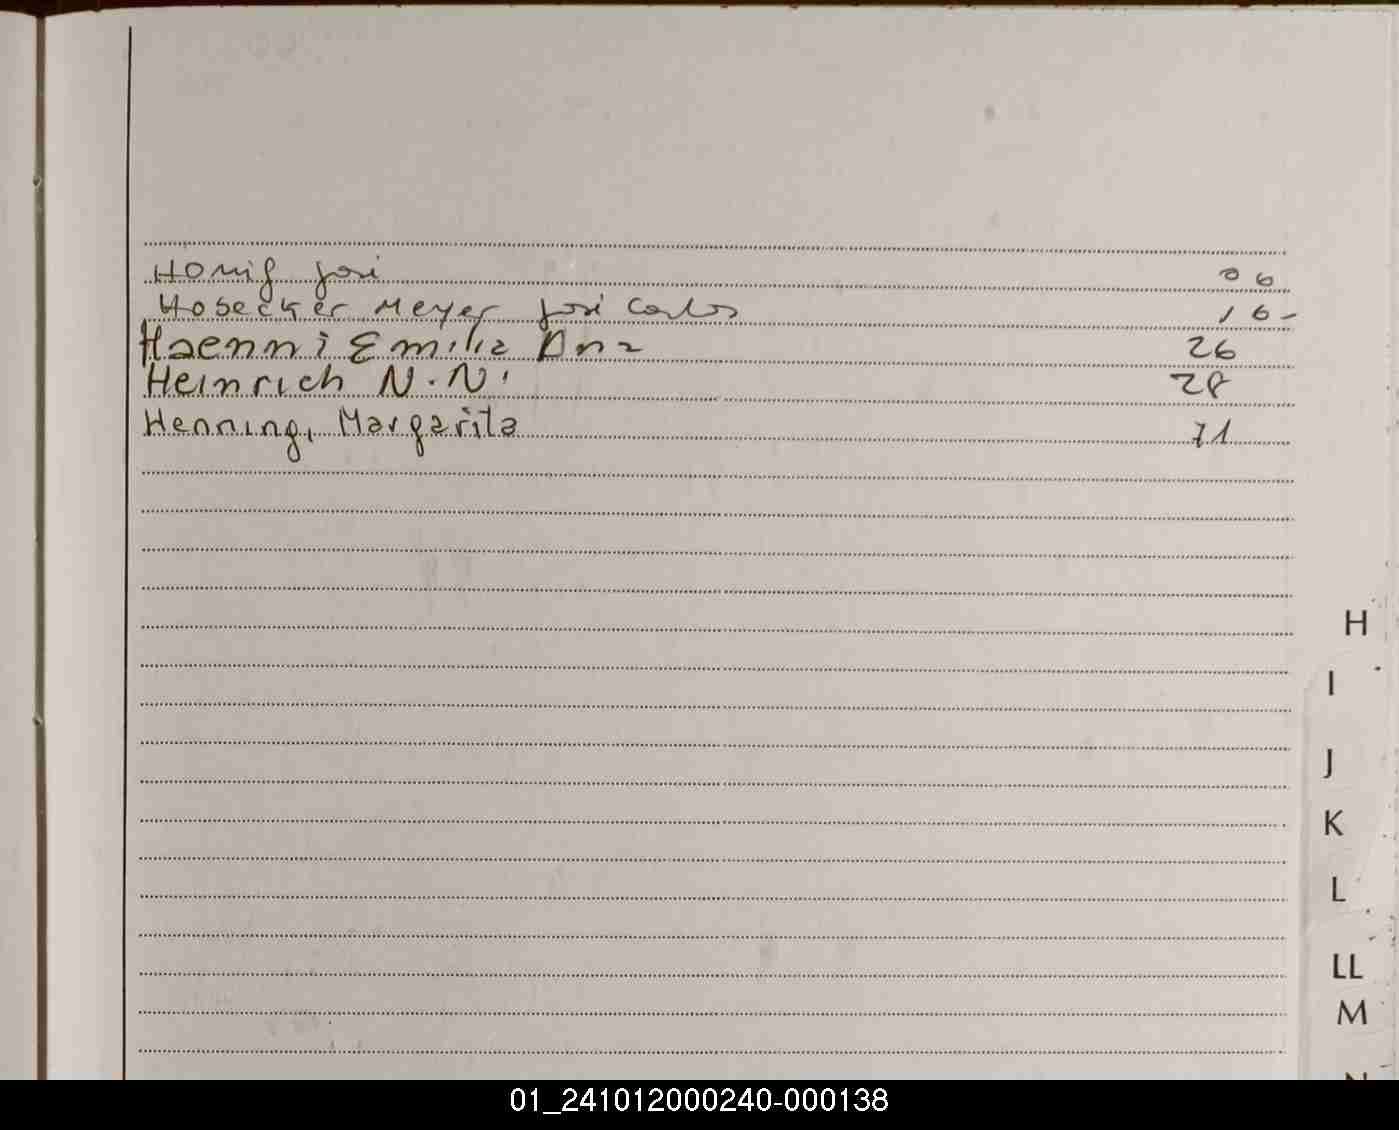 Honig José 06
Hobecker Meyer José Carlos 16-
Haenni Emilia Ana 26
Heinrich N.N. 28
Henning, Margarita 71
H
I
J
K
L
LL
M
N
01_241012000240-000138